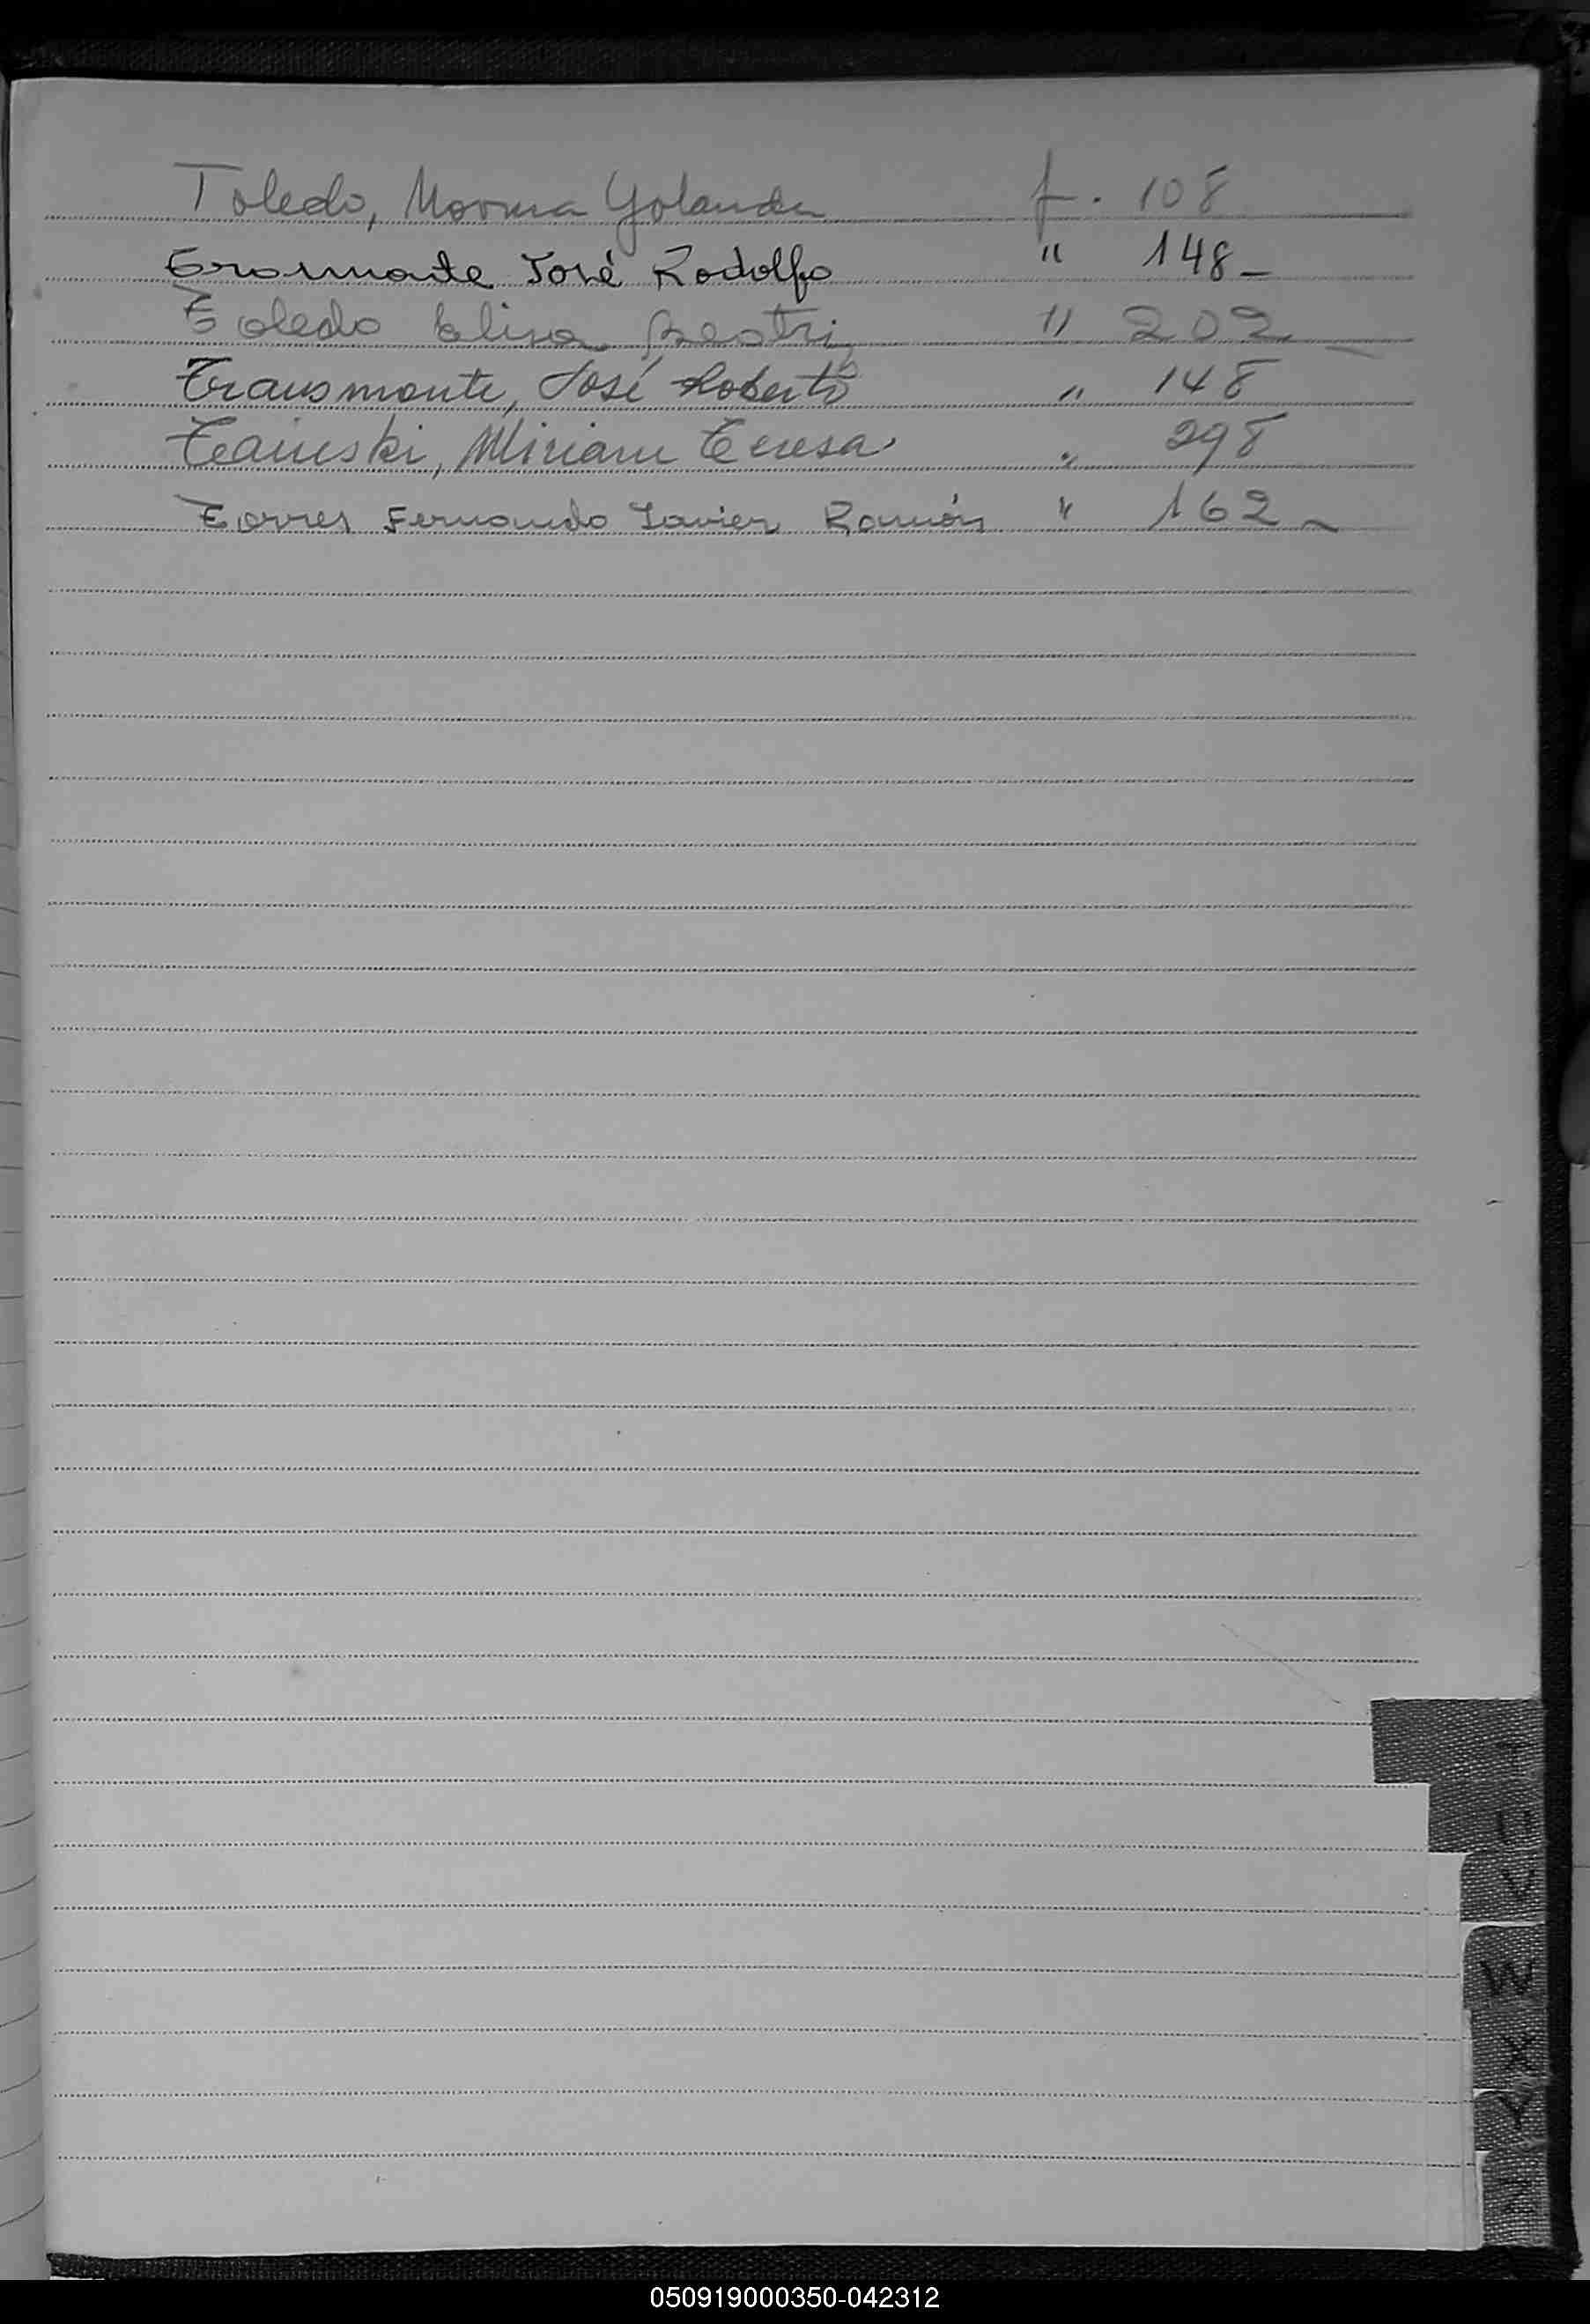 Toledo, Norma Yolanda f. 108
Trasmonte José Rodolfo " 148-
Toledo Elisa Beatriz " 202-
Transmonte, José Roberto " 148
Miriam Teresa " 298
Torres Fernando Javier Ramón " 162-
T
U
V
W
X
Y
Z
050919000350-042312